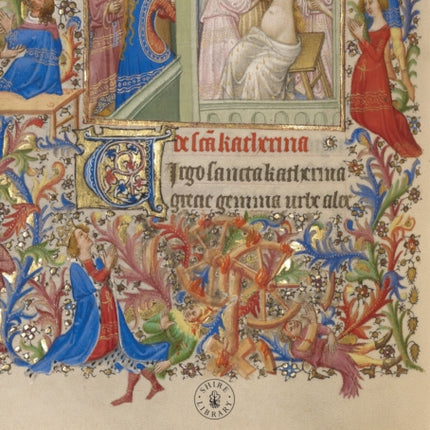 de scā katherina
Virgo sancta katherina
grecie gemma urbe alex
SHIRE LIBRARY